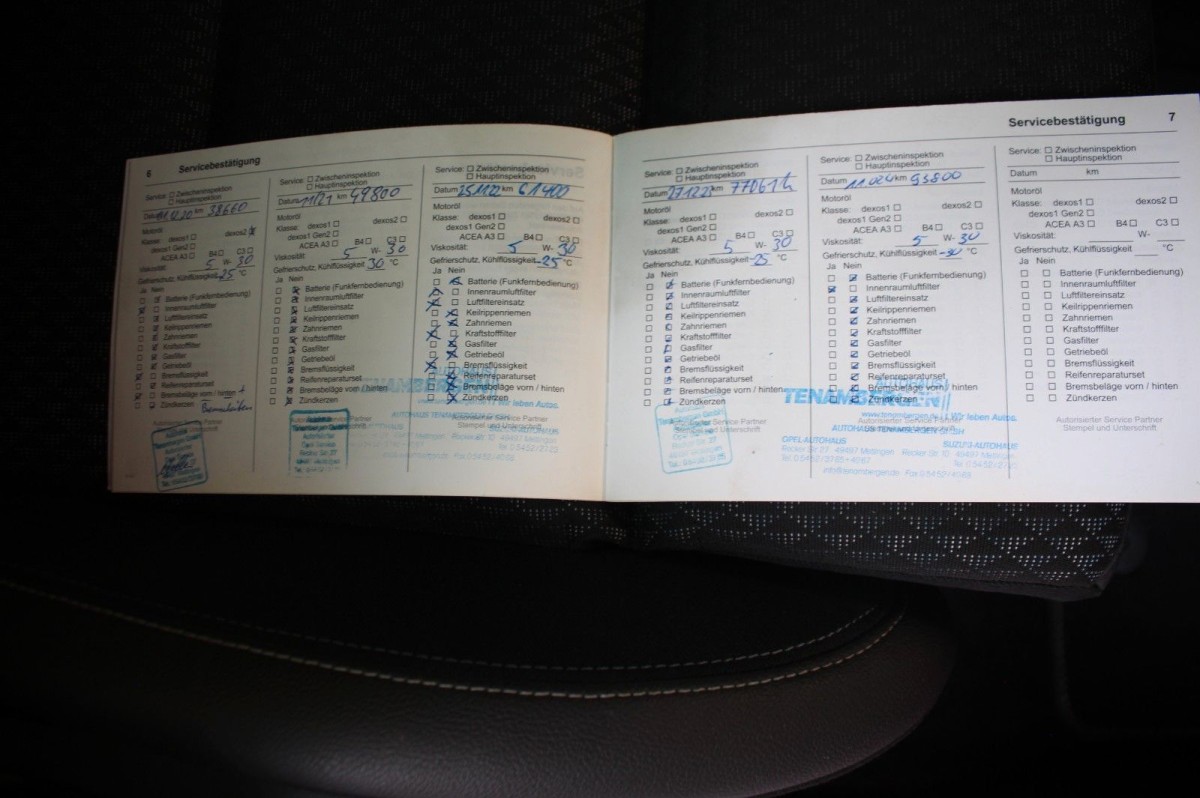 6 Servicebestätigung
Service: ☐ Zwischeninspektion
☐ Hauptinspektion
Datum km 38660
Motoröl
Klasse: dexos1 ☐ dexos2 ☒
dexos1 Gen2 ☐
ACEA A3 ☐ B4 ☐ C3 ☐
Viskosität: 5 W- 30
Gefrierschutz, Kühlflüssigkeit -25 °C
Ja Nein
Batterie (Funkfernbedienung)
Innenraumluftfilter
Luftfiltereinsatz
Keilrippenriemen
Zahnriemen
Kraftstofffilter
Gasfilter
Getriebeöl
Bremsflüssigkeit
Reifenreparaturset
Bremsbeläge vorn / hinten
Zündkerzen
Autorisierter Service Partner
Service: ☐ Zwischeninspektion
☐ Hauptinspektion
Datum 11/21 km 49800
Motoröl
Klasse: dexos1 ☐ dexos2 ☐
dexos1 Gen2 ☐
ACEA A3 ☐ B4 ☐ C3 ☐
Viskosität: 5 W- 30
Gefrierschutz, Kühlflüssigkeit 30 °C
Ja Nein
Batterie (Funkfernbedienung)
Innenraumluftfilter
Luftfiltereinsatz
Keilrippenriemen
Zahnriemen
Kraftstofffilter
Gasfilter
Getriebeöl
Bremsflüssigkeit
Reifenreparaturset
Bremsbeläge vorn / hinten
Zündkerzen
Autorisierter Service Partner
Service: ☐ Zwischeninspektion
☐ Hauptinspektion
Datum km 61400
Motoröl
Klasse: dexos1 ☐ dexos2 ☐
dexos1 Gen2 ☐
ACEA A3 ☐ B4 ☐ C3 ☐
Viskosität: 5 W- 30
Gefrierschutz, Kühlflüssigkeit -25 °C
Ja Nein
Batterie (Funkfernbedienung)
Innenraumluftfilter
Luftfiltereinsatz
Keilrippenriemen
Zahnriemen
Kraftstofffilter
Gasfilter
Getriebeöl
Bremsflüssigkeit
Reifenreparaturset
Bremsbeläge vorn / hinten
Zündkerzen
TENAMBERGEN
Wir leben Autos.
Autorisierter Service Partner
Stempel und Unterschrift
Servicebestätigung 7
Service: ☐ Zwischeninspektion
☐ Hauptinspektion
Datum km
Motoröl
Klasse: dexos1 ☐ dexos2 ☐
dexos1 Gen2 ☐
ACEA A3 ☐ B4 ☐ C3 ☐
Viskosität: 5 W- 30
Gefrierschutz, Kühlflüssigkeit -25 °C
Ja Nein
Batterie (Funkfernbedienung)
Innenraumluftfilter
Luftfiltereinsatz
Keilrippenriemen
Zahnriemen
Kraftstofffilter
Gasfilter
Getriebeöl
Bremsflüssigkeit
Reifenreparaturset
Bremsbeläge vorn / hinten
Zündkerzen
Service: ☐ Zwischeninspektion
☐ Hauptinspektion
Datum km 93800
Motoröl
Klasse: dexos1 ☐ dexos2 ☐
dexos1 Gen2 ☐
ACEA A3 ☐ B4 ☐ C3 ☐
Viskosität: 5 W- 30
Gefrierschutz, Kühlflüssigkeit -30 °C
Ja Nein
Batterie (Funkfernbedienung)
Innenraumluftfilter
Luftfiltereinsatz
Keilrippenriemen
Zahnriemen
Kraftstofffilter
Gasfilter
Getriebeöl
Bremsflüssigkeit
Reifenreparaturset
Bremsbeläge vorn / hinten
Zündkerzen
AUTOHAUS
TENAMBERGEN
Wir leben Autos.
Autorisierter Service Partner
Stempel und Unterschrift
AUTOHAUS TENAMBERGEN GMBH
OPEL-AUTOHAUS SUZUKI-AUTOHAUS
49497 Mettingen 49497 Mettingen
Service: ☐ Zwischeninspektion
☐ Hauptinspektion
Datum km
Motoröl
Klasse: dexos1 ☐ dexos2 ☐
dexos1 Gen2 ☐
ACEA A3 ☐ B4 ☐ C3 ☐
Viskosität: W-
Gefrierschutz, Kühlflüssigkeit °C
Ja Nein
☐ ☐ Batterie (Funkfernbedienung)
☐ ☐ Innenraumluftfilter
☐ ☐ Luftfiltereinsatz
☐ ☐ Keilrippenriemen
☐ ☐ Zahnriemen
☐ ☐ Kraftstofffilter
☐ ☐ Gasfilter
☐ ☐ Getriebeöl
☐ ☐ Bremsflüssigkeit
☐ ☐ Reifenreparaturset
☐ ☐ Bremsbeläge vorn / hinten
☐ ☐ Zündkerzen
Autorisierter Service Partner
Stempel und Unterschrift